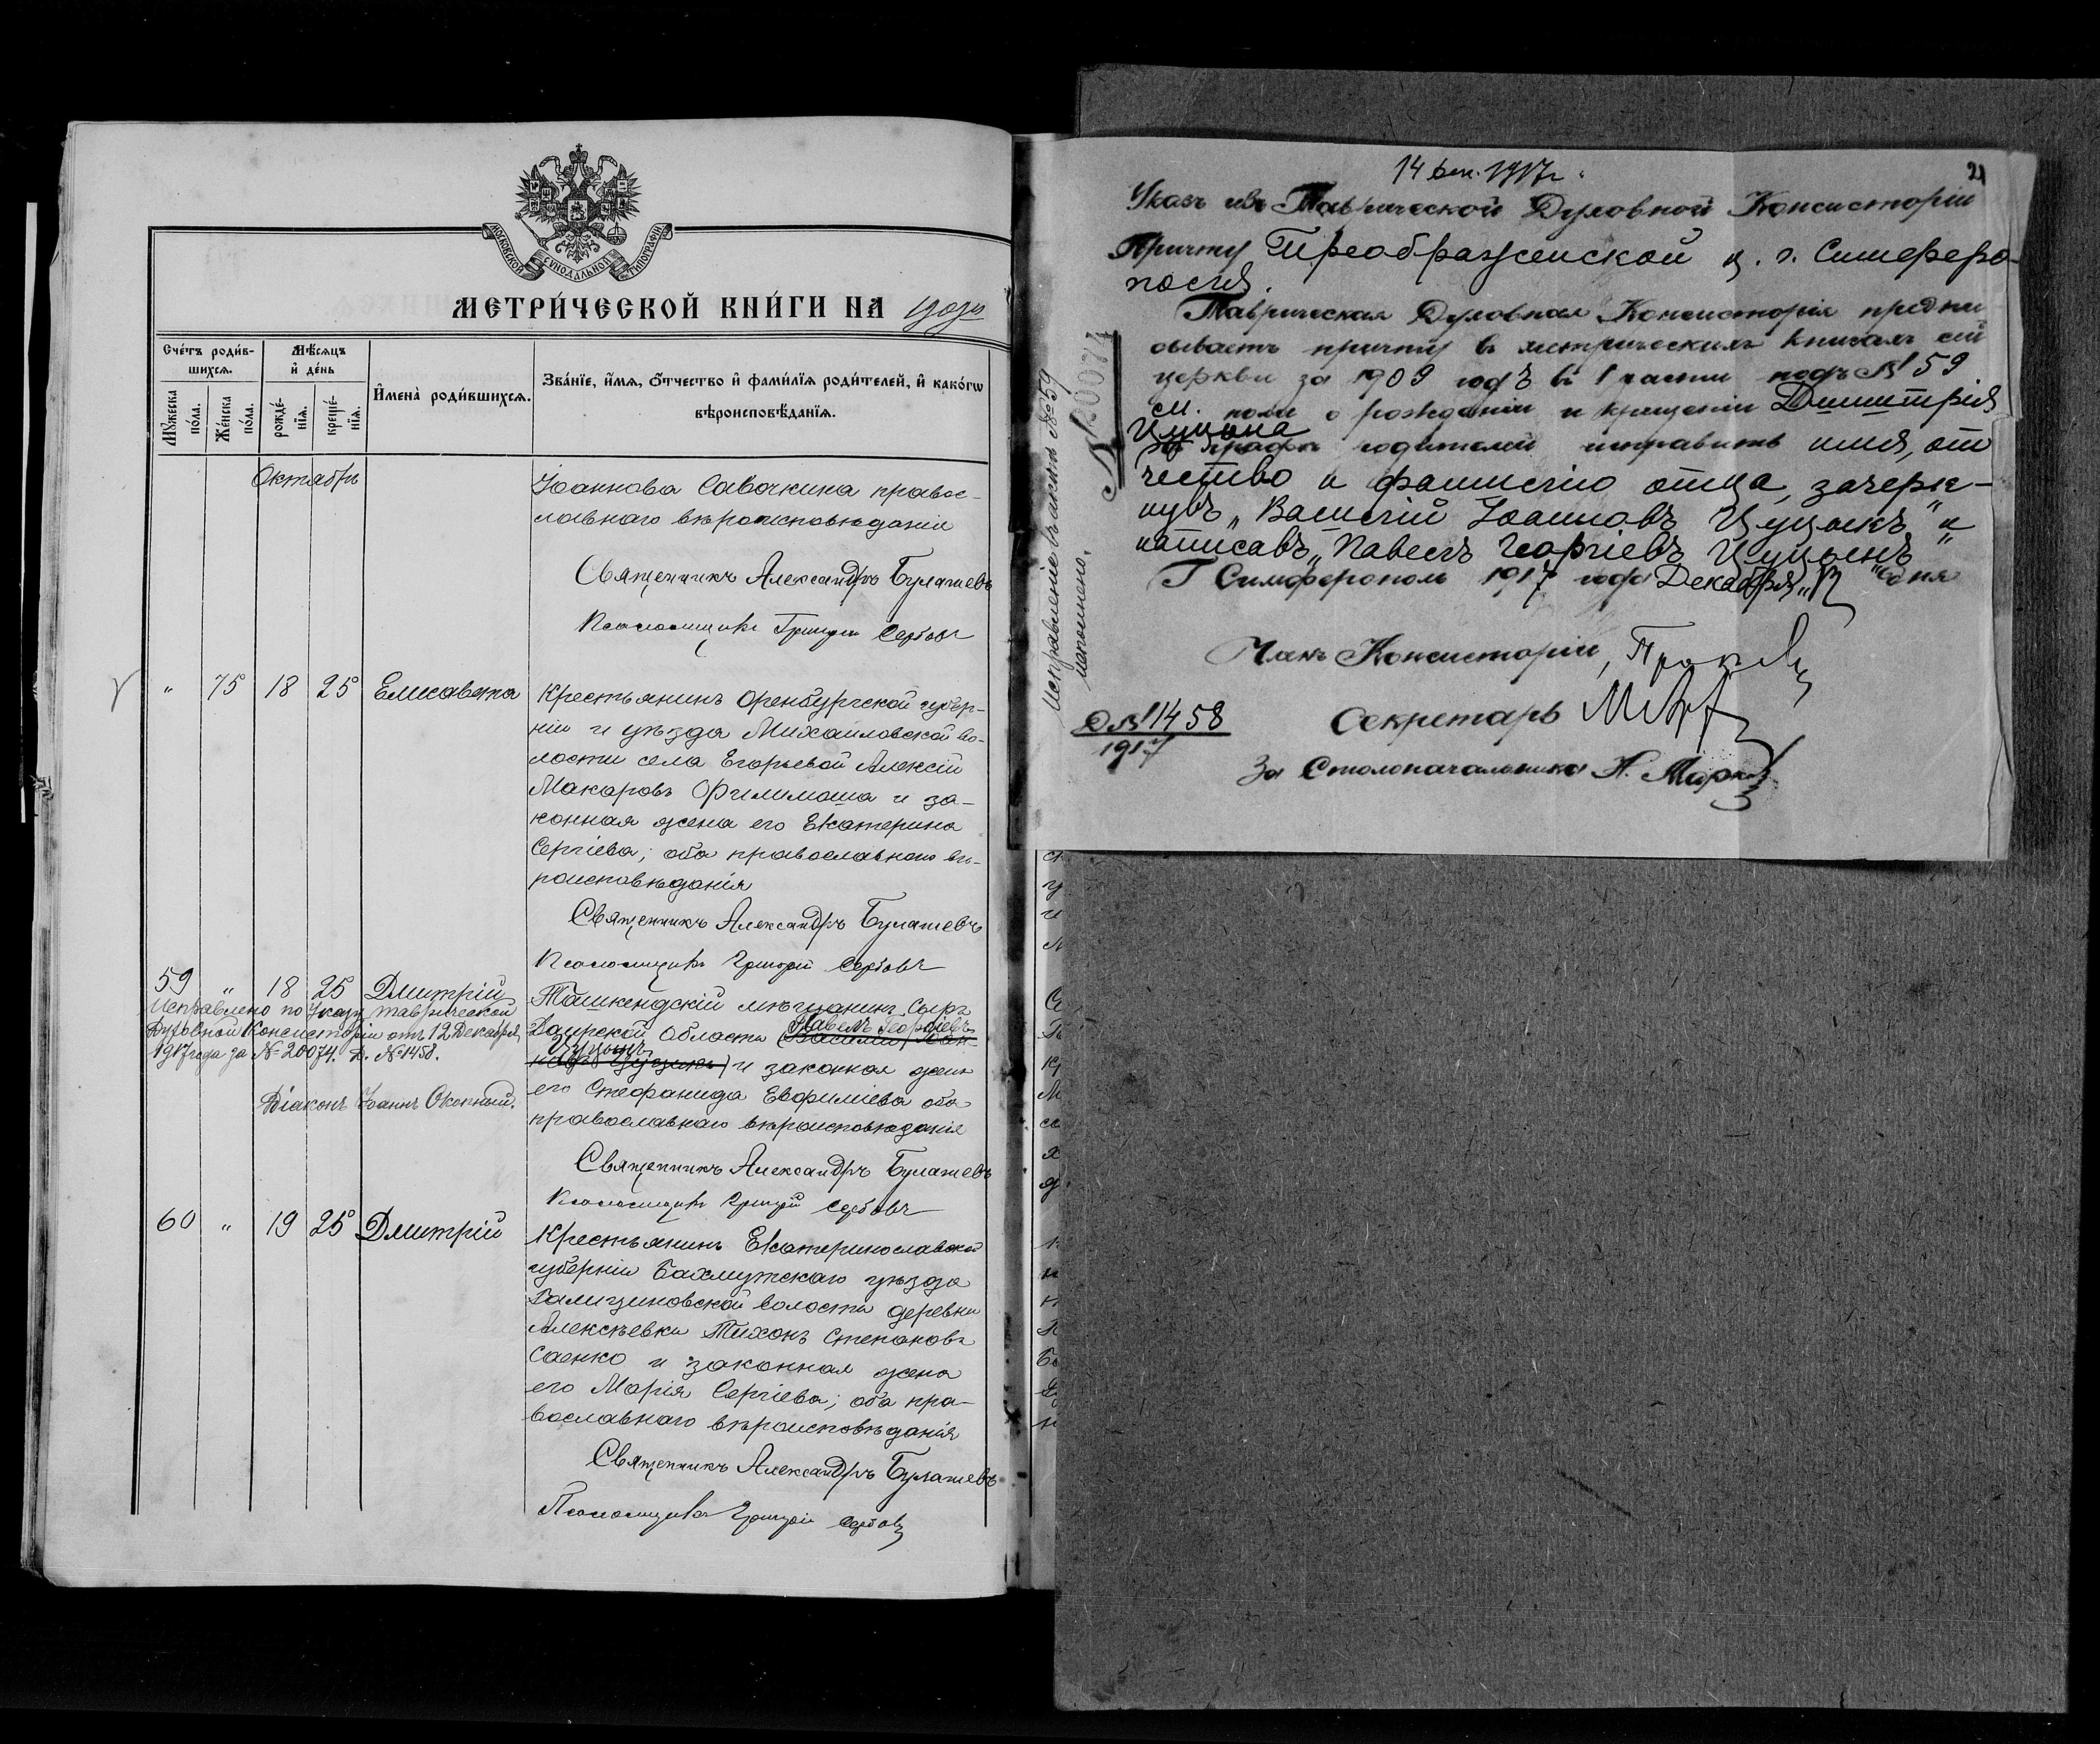 МОСКОВСКОЙ СУНОДАЛЬНОЙ ТИПОГРАФІИ
МЕТРИ́ЧЕСКОЙ КНИ́ГИ НА 1909
Сче́тъ роди́в-
шихся.
Мѣ́сяцъ
и҆ де́нь
Мꙋ́жеска
по́ла.
Же́нска
по́ла.
рожде́-
нїя.
креще́-
нїя.
И҆мена̀ роди́вшихся.
Зва́нїе, и҆́мѧ, ѻ҆́тчество и҆ фами́лїѧ роди́телей, и҆ како́гѡ
вѣроисповѣ́данїѧ.
Октябрь
Іоаннова Савочкина правос-
лавнаго вѣроисповѣданія
Священникъ Александръ Булашевъ
Псаломщикъ Григорій Сербовъ
" 75 18 25 Елисавета
Крестьянинъ Оренбургской губер-
ніи и уѣзда Михайловской во-
лости села Егорьевой Алексій
Макаровъ Филимоша и за-
конная жена его Екатерина
Сергіева; оба православнаго вѣ-
роисповѣданія
Священникъ Александръ Булашевъ
Псаломщикъ Григорій Сербовъ
59 " 18 25 Дмитрій
Исправлено по Указу Таврической
Духовной Консисторіи отъ 12 Декабря
1917 года за № 20074. Д. № 1458.
Діаконъ Іоаннъ Окопный.
Ташкендскій мѣщанинъ Сыръ
Дарьской Области (Павелъ Георгіевъ
Василій Іоан-
Цуцынъ
новъ Цуцыкъ) и законная жена
его Стефанида Евфиміева оба
православнаго вѣроисповѣданія
Священникъ Александръ Булашевъ
Псаломщикъ Григорій Сербовъ
60 " 19 25 Дмитрій
Крестьянинъ Екатеринославской
губерніи Бахмутскаго уѣзда
Голициновской волости деревни
Алексѣевки Тихонъ Степановъ
Саенко и законная жена
его Марія Сергіева; оба пра-
вославнаго вѣроисповѣданія
Священникъ Александръ Булашевъ
Псаломщикъ Григорій Сербовъ
14 Дек. 1917 г.
21
Указъ изъ Таврической Духовной Консисторіи
Причту Преображенской ц. г. Симферо-
поля.
Таврическая Духовная Консисторія предпи
сываетъ причту въ метрическихъ книгахъ сей
церкви за 1909 годъ въ 1 части подъ № 59
м. пола о рожденіи и крещеніи Димитрія
Цуцына
въ графѣ родителей исправить имя, от
чество и фамилію отца, зачерк-
нувъ „Василій Іоанновъ Цуцыкъ" и
написавъ „Павелъ Георгіевъ Цуцынъ"
Г Симферополь 1917 года Декабря „12" дня
Членъ Консисторіи,
Секретарь
За Столоначальника Н.
Д № 1458
1917
№ 20074
Исправленіе въ актѣ № 59
исполнено.